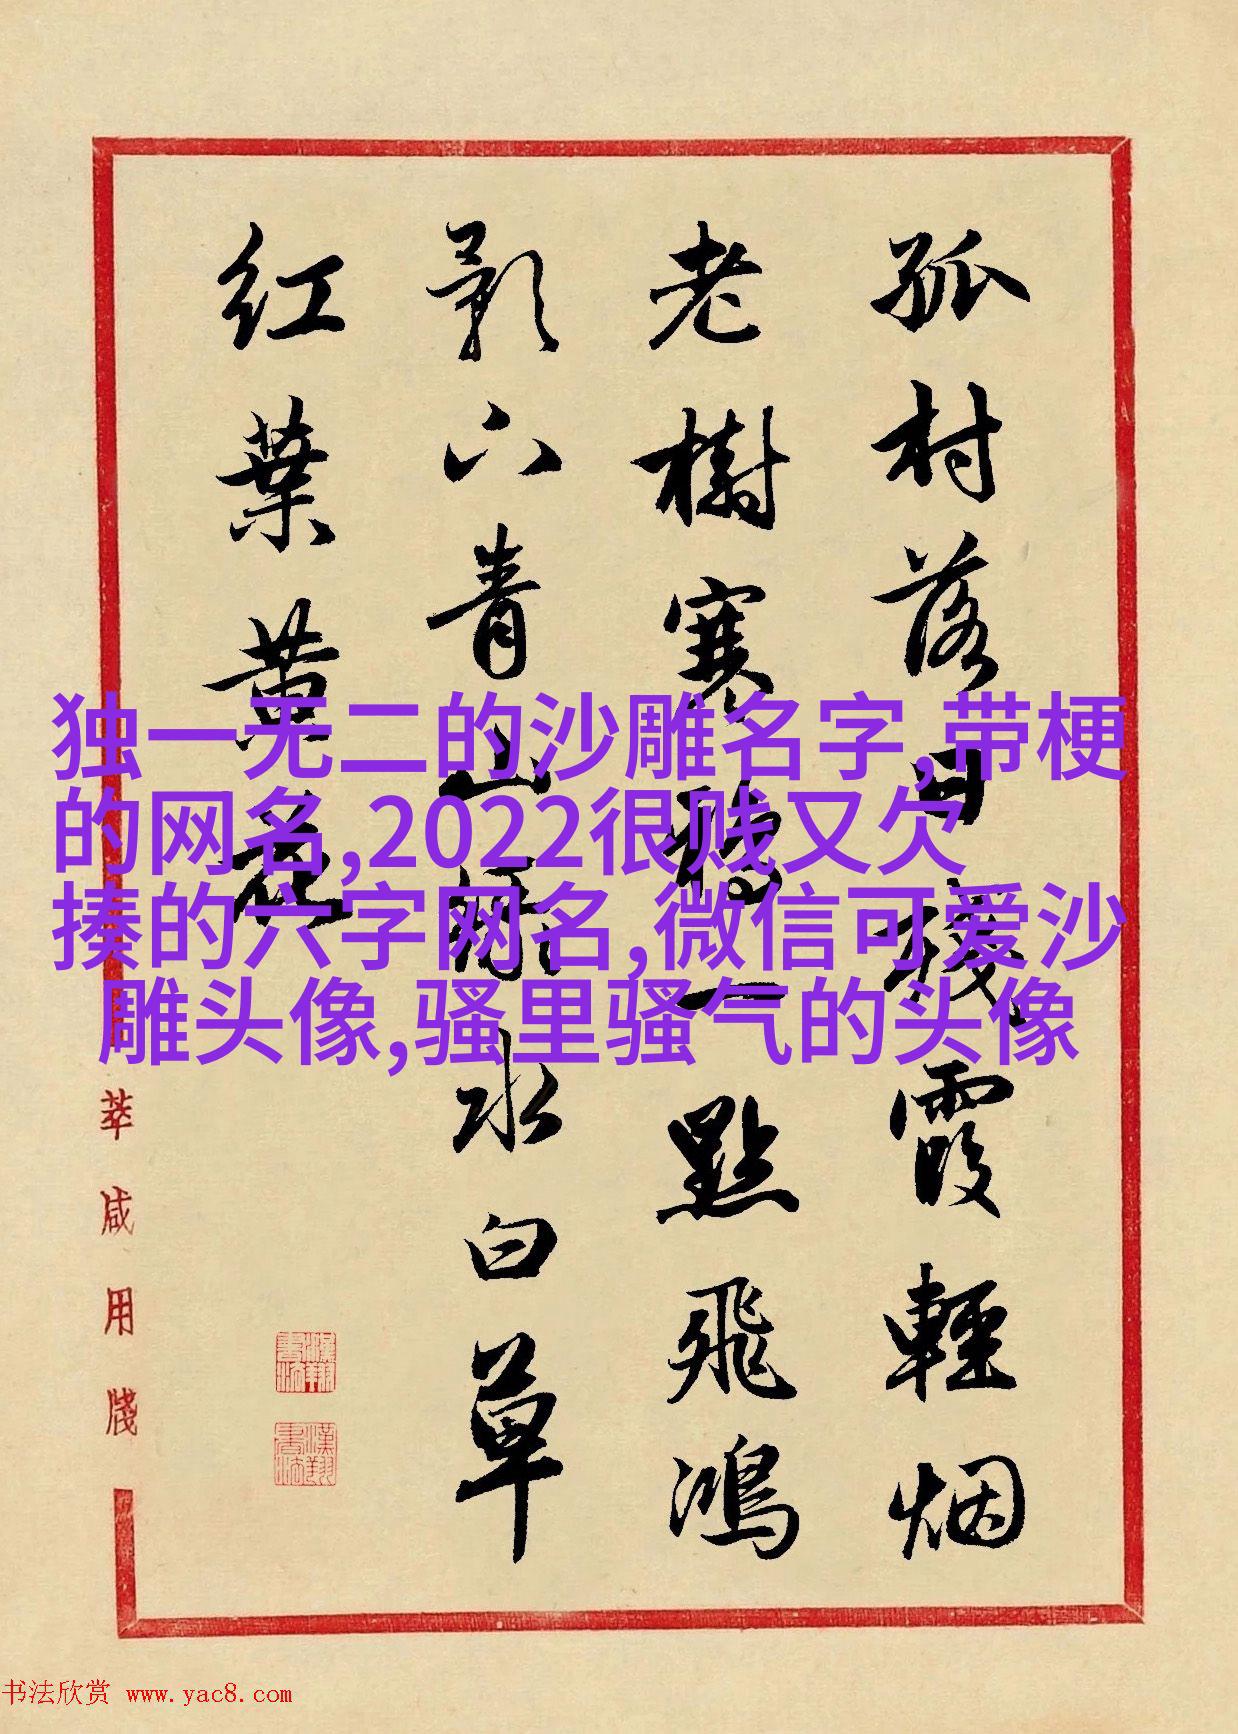 孤村落日残霞輕烟
老樹寒鴉一點飛鴻
影下青山緑水白草
红葉黄花
独一无二的沙雕名字,带梗
的网名,2022很贱又欠
揍的六字网名,微信可爱沙
雕头像,骚里骚气的头像
用牋
书法欣赏 www.yac8.com